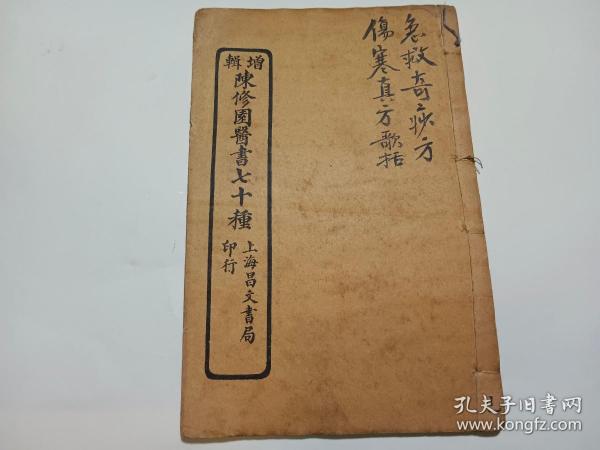 急救奇痧方
傷寒真方歌括
增輯
陳修園醫書七十種
上海昌文書局
印行
孔夫子旧书网
www.kongfz.com